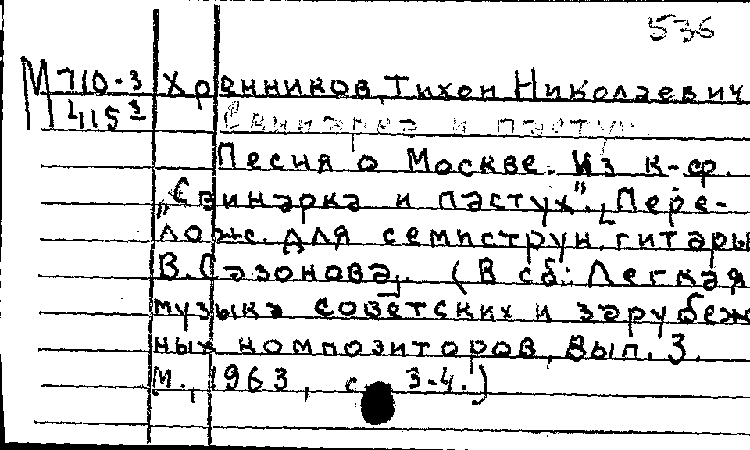 536
М 710-3 Хренников, Тихон Николаевич
415³
Свинарка и пастух
Песня о Москве. Из к-ф.
„Свинарка и пастух". [Пере-
лож. для семиструн. гитары
В. Сазонова]. (В сб.: Легкая
музыка советских и зарубеж
ных композиторов, вып. 3.
М., 1963, с. 3-4.)